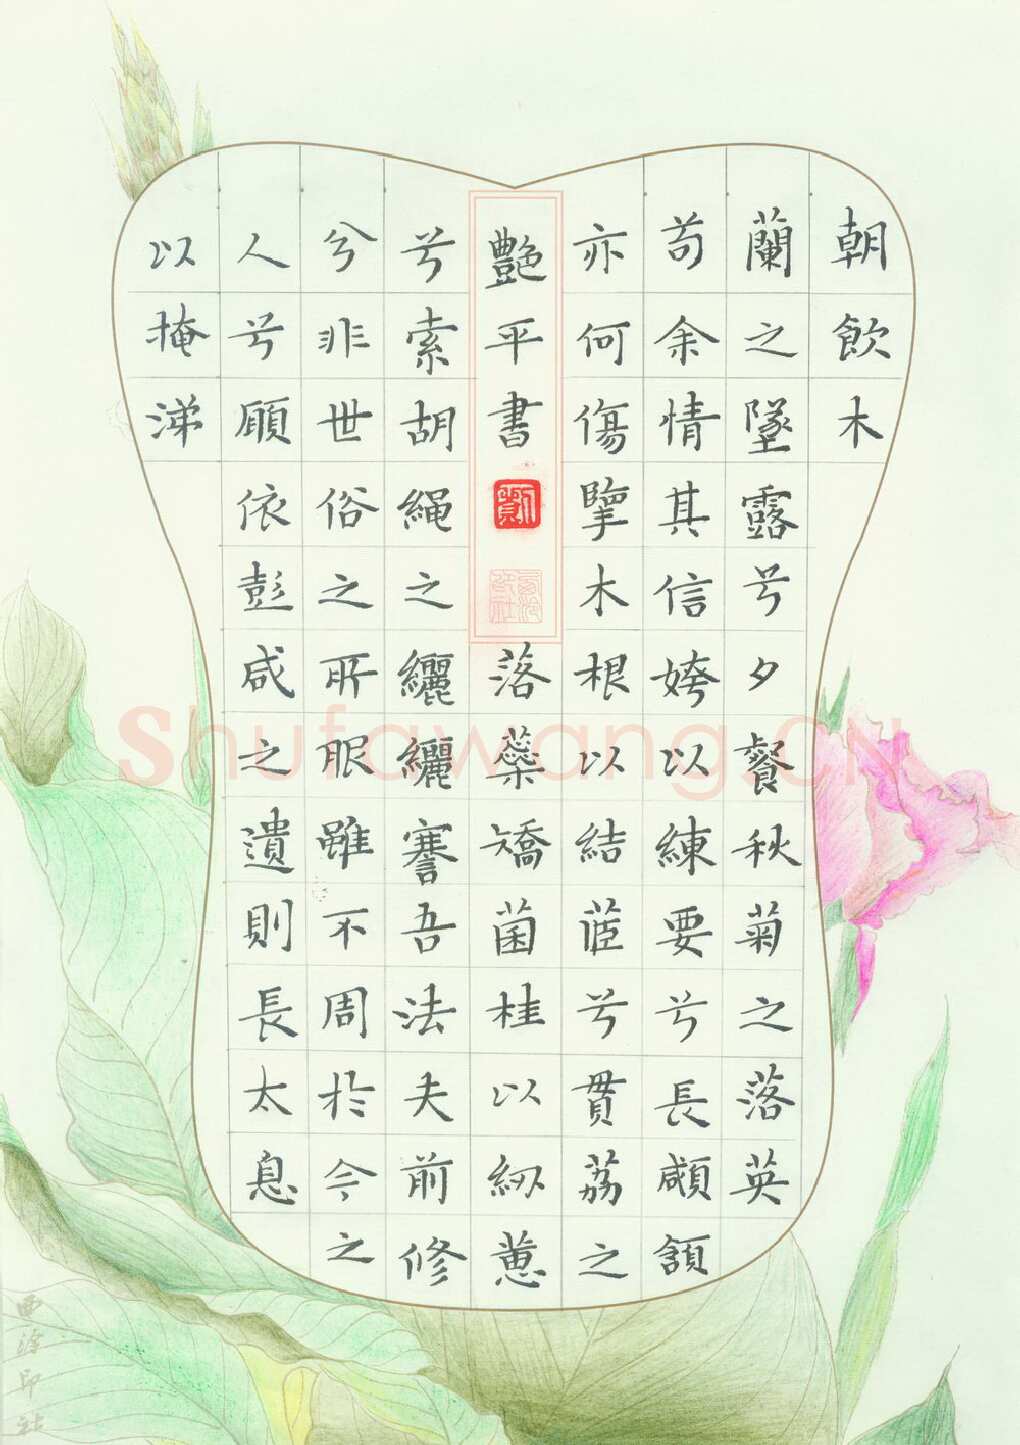 朝飲木
蘭之墜露兮夕餐秋菊之落英
苟余情其信姱以練要兮長顑頷
亦何傷擥木根以結茝兮貫荔之
艷平書
落蘂矯菌桂以紉蕙
兮索胡繩之纚纚謇吾法夫前修
兮非世俗之所服雖不周於今之
人兮願依彭咸之遺則長太息
以掩涕
西泠印社
西泠印社
Shufawang.CN